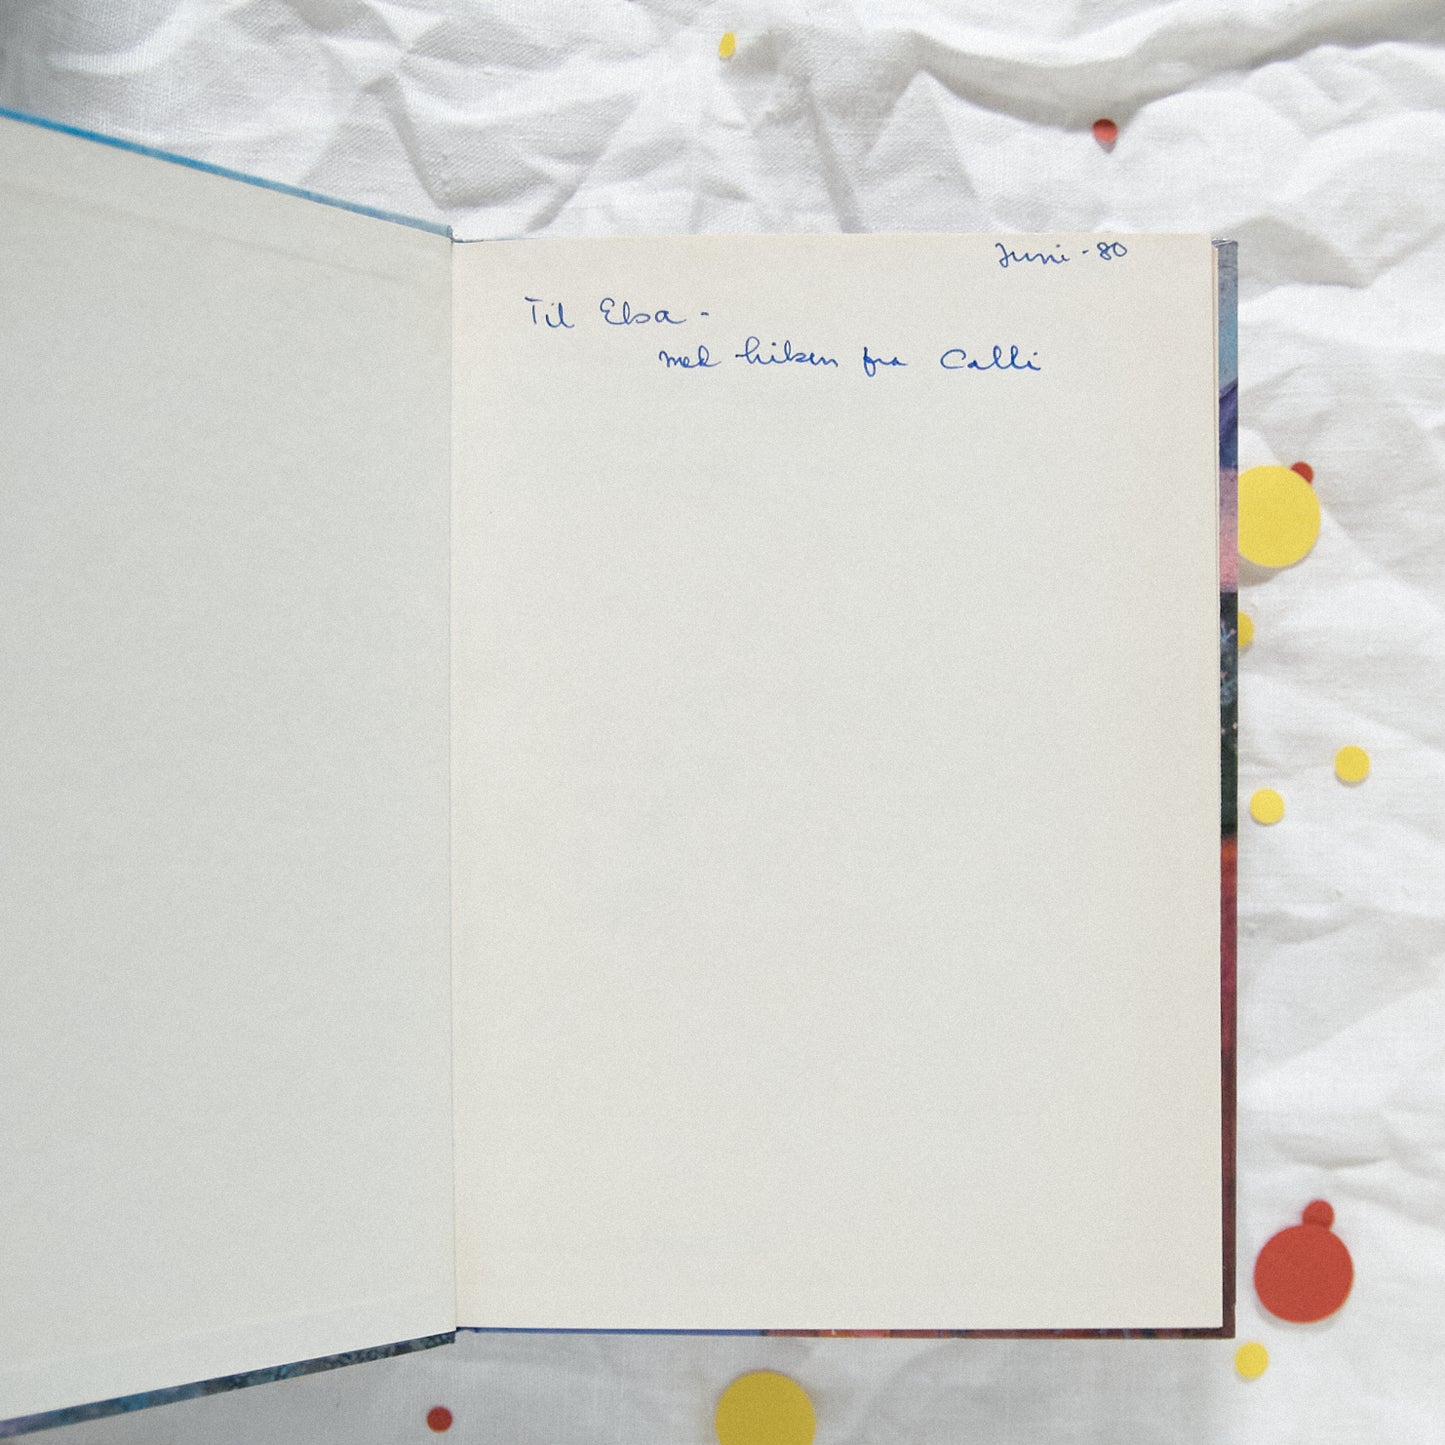 Juni - 80
Til Elsa -
med hilsen fra Calli